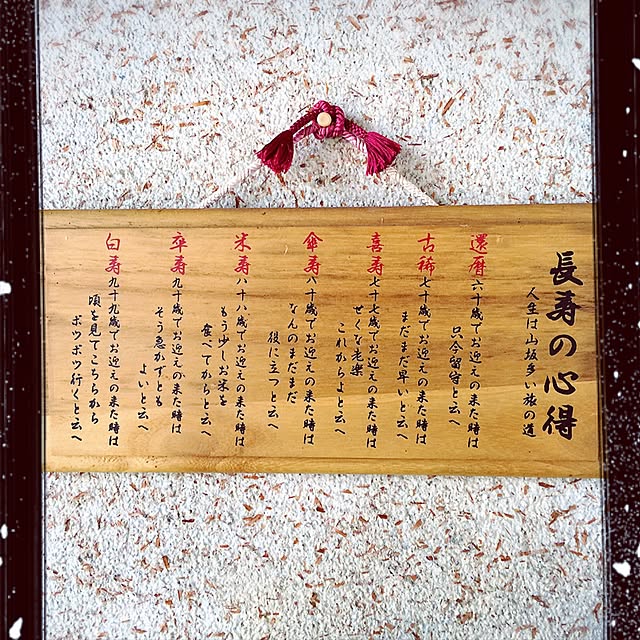 長寿の心得
人生は山坂多い旅の道
還暦 六十歳でお迎えの来た時は
只今留守と云へ
古稀 七十歳でお迎えの来た時は
まだまだ早いと云へ
喜寿 七十七歳でお迎えの来た時は
せくな老楽
これからよと云へ
傘寿 八十歳でお迎えの来た時は
なんのまだまだ
役に立つと云へ
米寿 八十八歳でお迎えの来た時は
もう少しお米を
食べてからと云へ
卒寿 九十歳でお迎えの来た時は
そう急がずとも
よいと云へ
白寿 九十九歳でお迎えの来た時は
頃を見てこちらから
ボツボツ行くと云へ